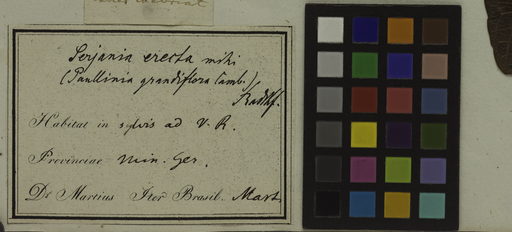 Serjania erecta mihi
(Paullinia grandiflora Camb.)
Radlkf.
Habitat in sylvis ad V. R.
Provinciae Min. Ger.
Dr Martius Iter Brasil. Mart